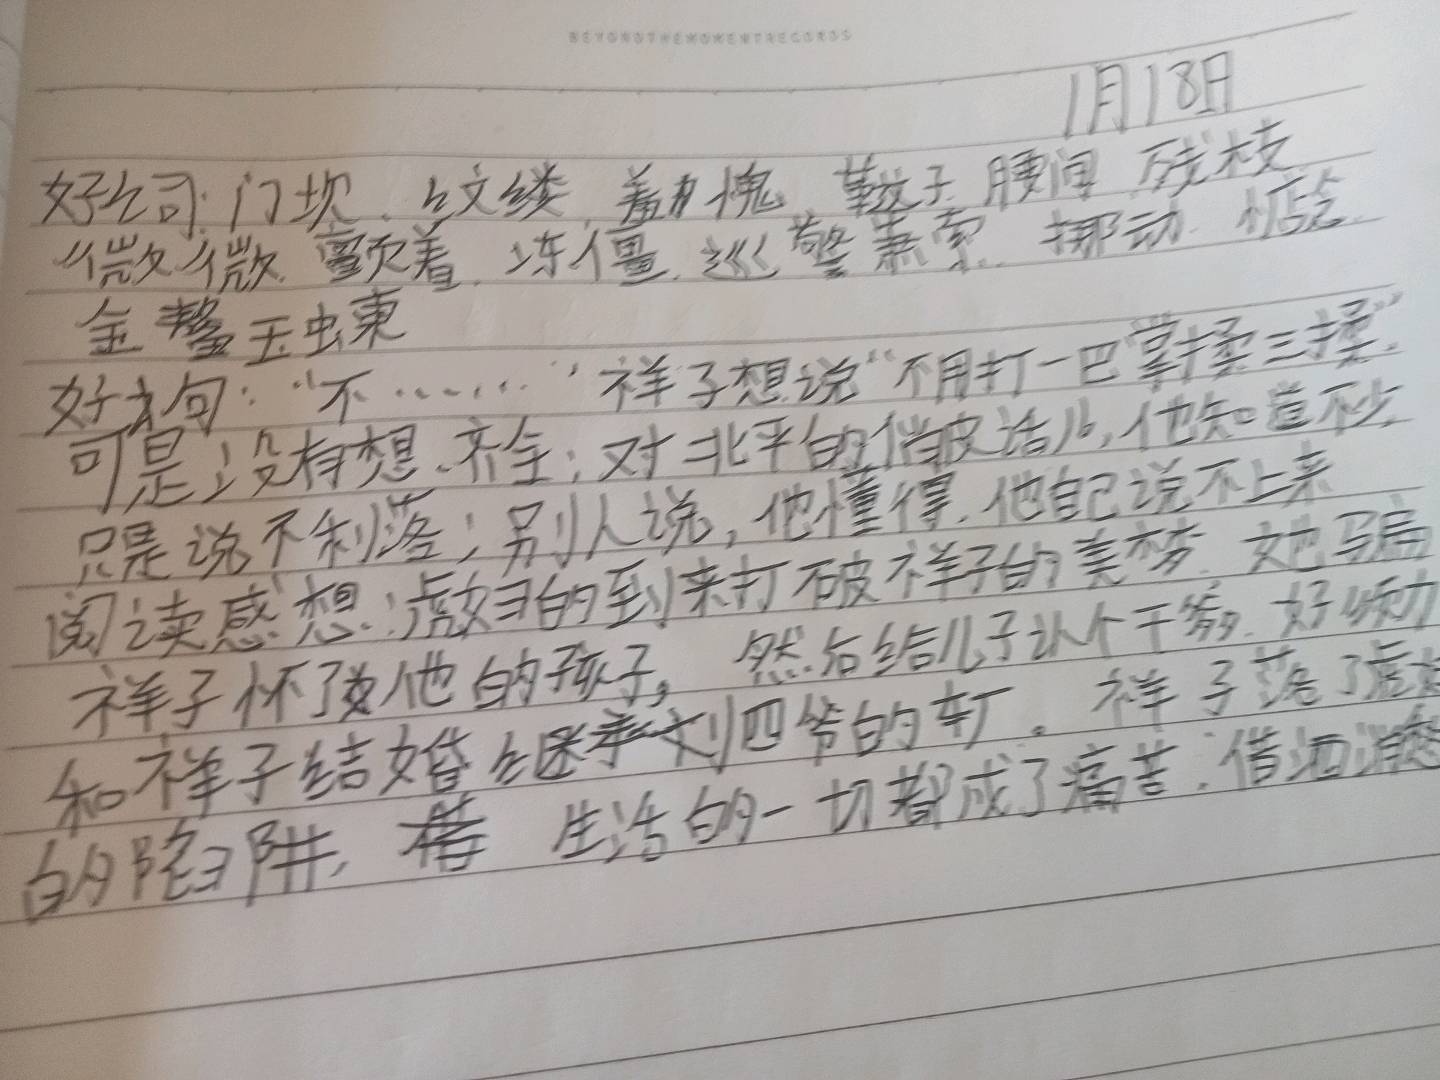 BEYONDTHEMOMENTRECORDS
1月18日
好公司:门坎、纹缕、羞愧、鞋子、腰间、残枝
微微、颤着、冻僵、巡警、萧索、挪动、惦念
金鳌玉蝀
好句:“不……”祥子想说“不用打一巴掌揉三揉”
可是没有想齐全;对北平的俏皮话儿,他知道不少
只是说不利落;别人说,他懂得,他自己说不上来
阅读感想:虎妞的到来打破祥子的美梦、她骗
祥子怀了他的孩子,然后给儿子认个干爹、好顺力
和祥子结婚继承刘四爷的车厂。祥子落了虎妞
的陷阱, 生活的一切都成了痛苦,借酒消愁